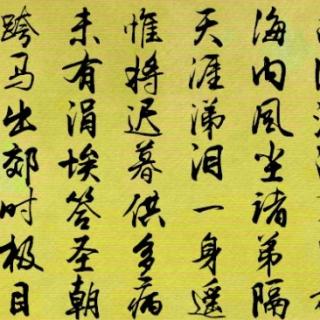 海内風尘诸弟隔
天涯涕泪一身遥
惟将迟暮供多病
未有涓埃答圣朝
跨马出郊时极目